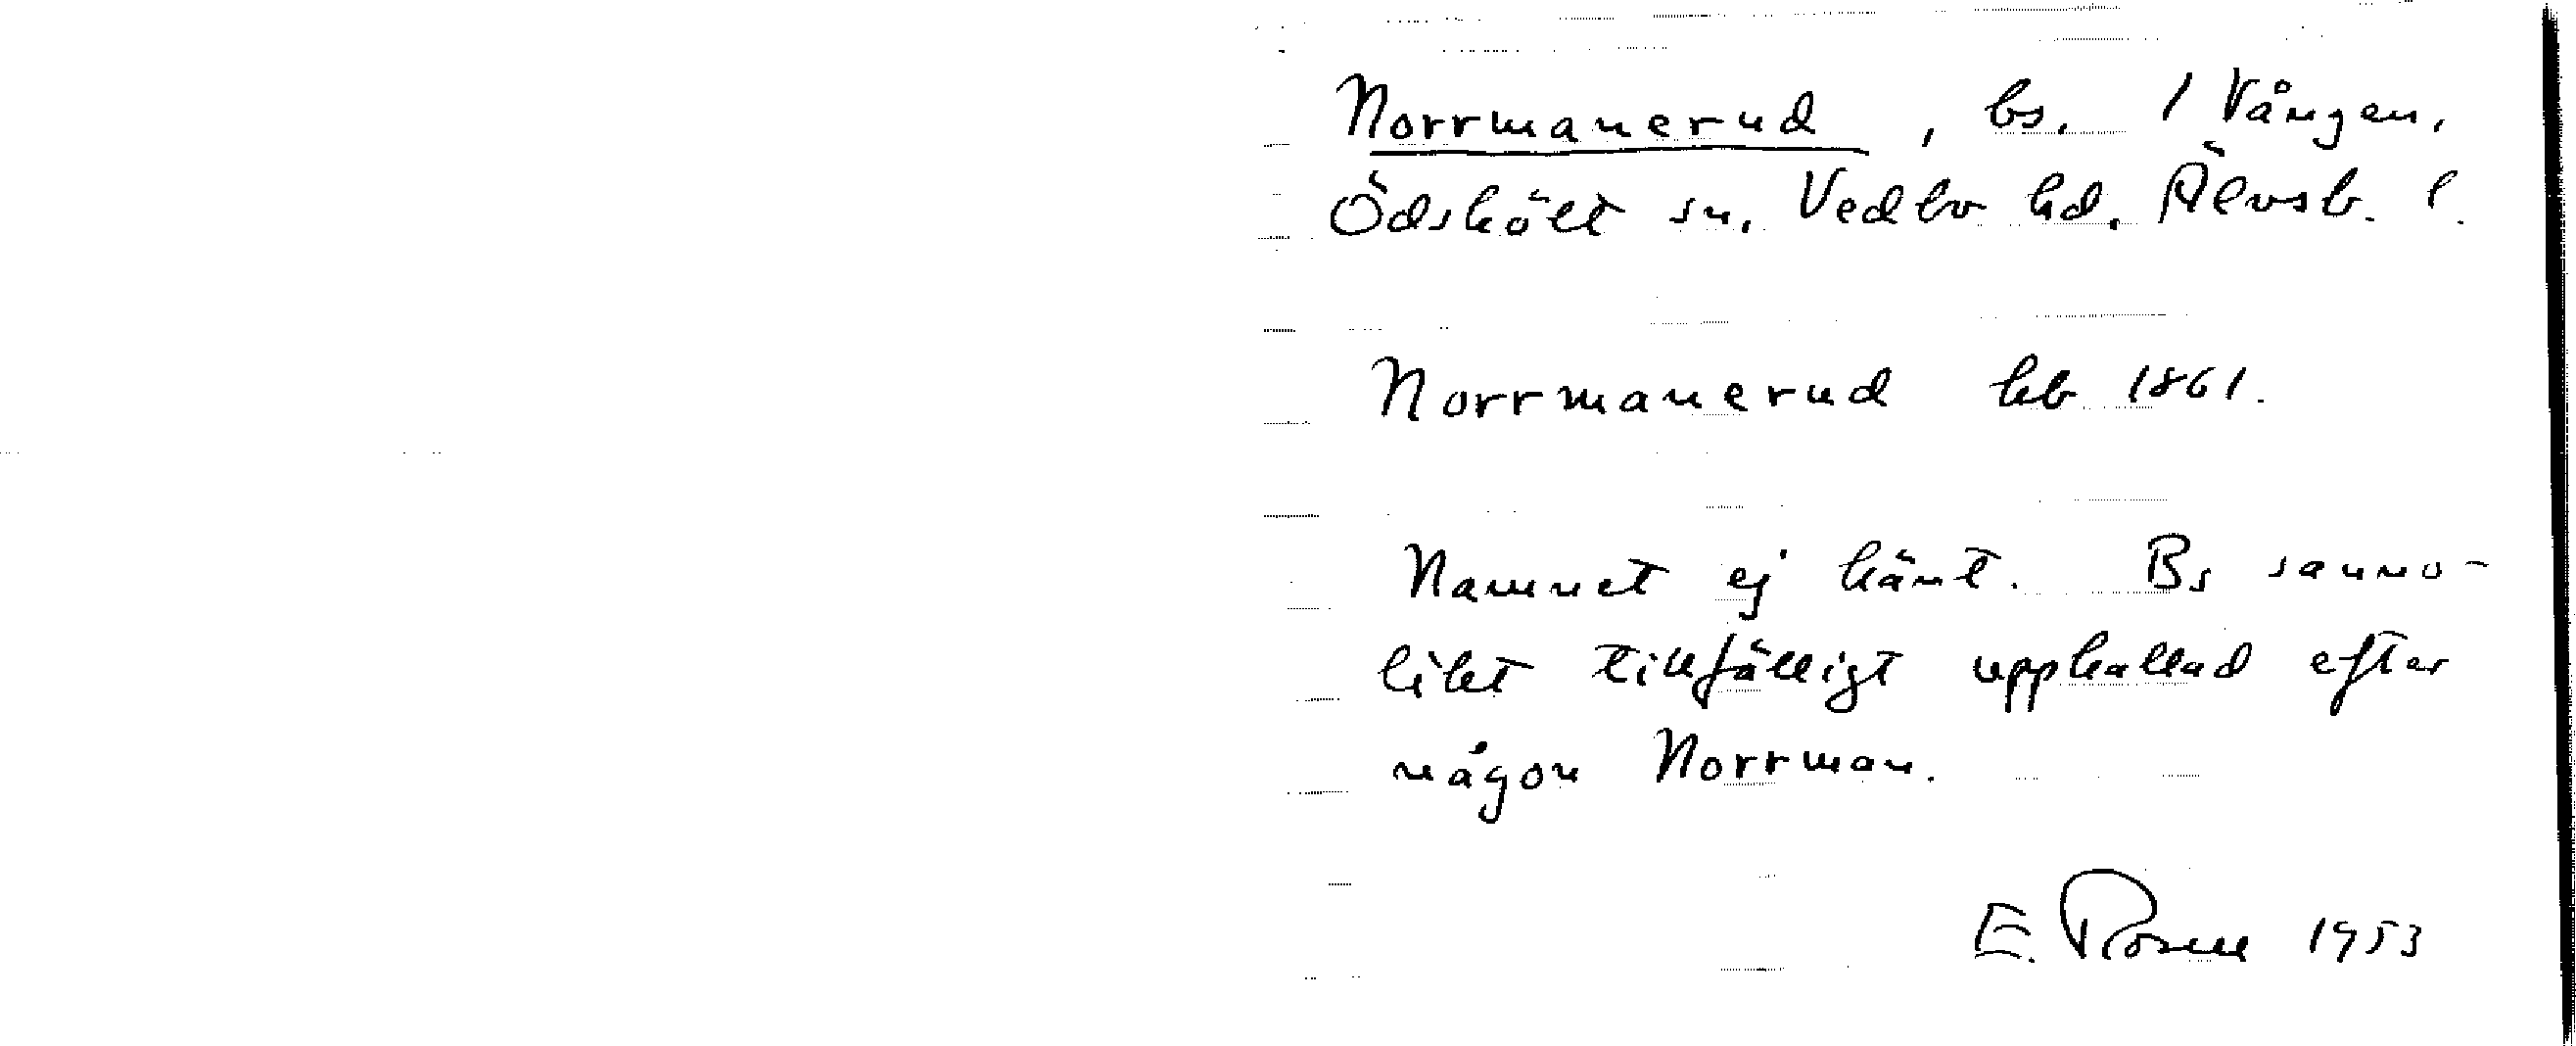 Norrmanerud, bs. / Vången,
Ödskölt sn, Vedbo hd. Älvsb. l.
Norrmanerud hb 1861.
Namnet ej känt. Bs sanno-
likt tillfälligt uppkallad efter
någon Norrman.
E. Rosell 1953